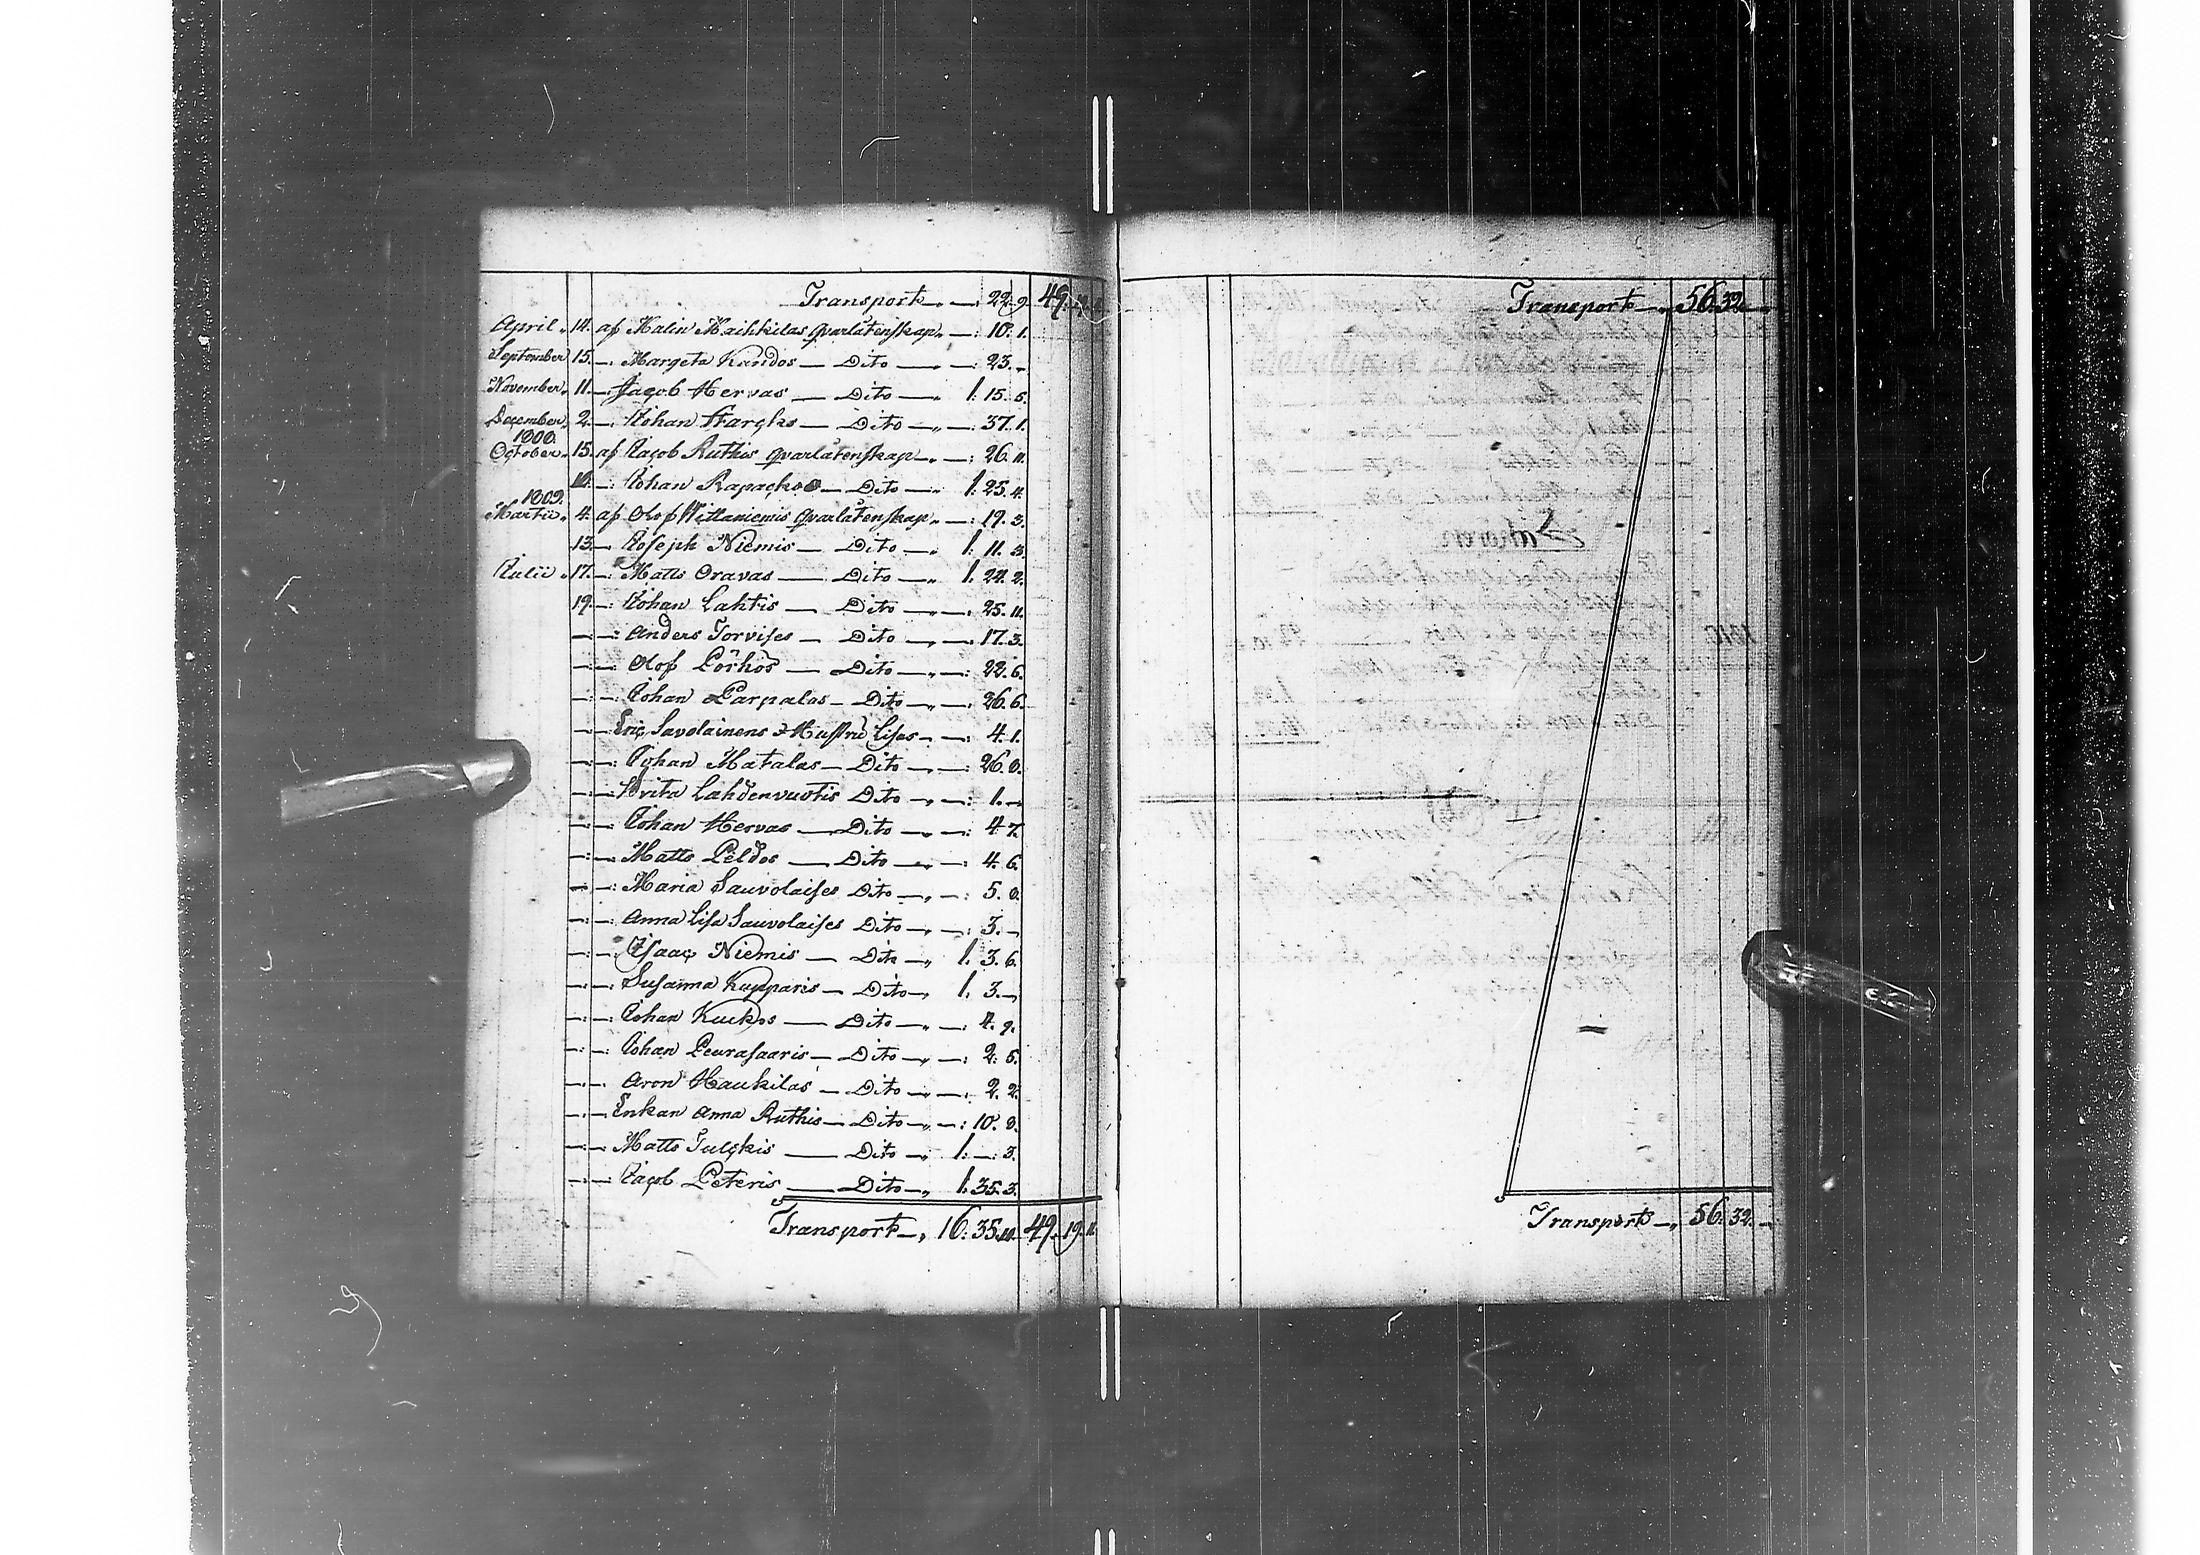 Transport — 22. 9. 49.
April 14. af Malin Maihkilas qvarlåtenskap — 10. 1.
September 15. — Margeta Kardos — Dito — 23. —
November 11. — Jacob Hervas — Dito — 1. 15. 5.
December 2. — Johan Starcks — Dito — 37. 1.
1808.
October 15. af Jacob Ruthis qvarlåtenskap — 26. 11.
Johan Rapacko — Dito — 1. 25. 4.
1809.
Martii 4. af Olof Wittaniemis qvarlåtenskap — 19. 3.
13. — Joseph Niemis — Dito — 1. 11. 3.
Julii 17. — Matts Oravas — Dito — 1. 24. 2.
19. — Johan Lahtis — Dito — 25. 11.
— Anders Torvises — Dito — 17. 3.
— Olof Pörhös — Dito — 22. 6.
— Johan Parpalas — Dito — 26. 6.
— Eric Savolainens Hustru Lisas — 4. 1.
— Johan Matalas — Dito — 26. 8.
— Brita Lahdenvuotis Dito — 1. —
— Johan Hervas — Dito — 4. 7.
— Matts Peldos — Dito — 4. 6.
— Maria Sauvolaises Dito — 5. 8.
— Anna Lisa Sauvolaises Dito — 3. —
— Isaac Niemis — Dito — 1. 3. 6.
— Susanna Kupparis — Dito — 1. 3. —
— Johan Kuckos — Dito — 4. 9.
— Johan Peurasaaris — Dito — 2. 5.
— Aron Haukilas — Dito — 2. 2.
— Enkan Anna Ruthis — Dito — 10. 8.
— Matts Tulckis — Dito — 1. — 3.
— Jacob Peteris — Dito — 1. 35. 3.
Transport — 16. 35. 10. 49. 19. 11.
Transport — 56. 32. —
Transport — 56. 32. —